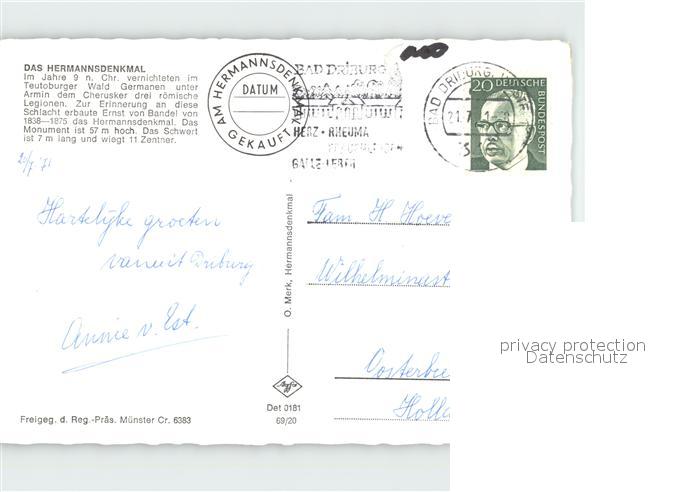 DAS HERMANNSDENKMAL
Im Jahre 9 n. Chr. vernichteten im
Teutoburger Wald Germanen unter
Armin dem Cherusker drei römische
Legionen. Zur Erinnerung an diese
Schlacht erbaute Ernst von Bandel von
1838—1875 das Hermannsdenkmal. Das
Monument ist 57 m hoch. Das Schwert
ist 7 m lang und wiegt 11 Zentner.
AM HERMANNSDENKMAL
DATUM
GEKAUFT
BAD DRIBURG
HERZ · RHEUMA
GALLE-LEBER
BAD DRIBURG
21.7
20 DEUTSCHE
BUNDESPOST
Hartelijke groeten
vanuit Driburg
Annie v. Est.
O. Merk, Hermannsdenkmal
Fam H Hoeve
Wilhelminast
Oosterbe
Holla
Agfa
Det 0181
69/20
Freigeg. d. Reg.-Präs. Münster Cr. 6383
privacy protection
Datenschutz